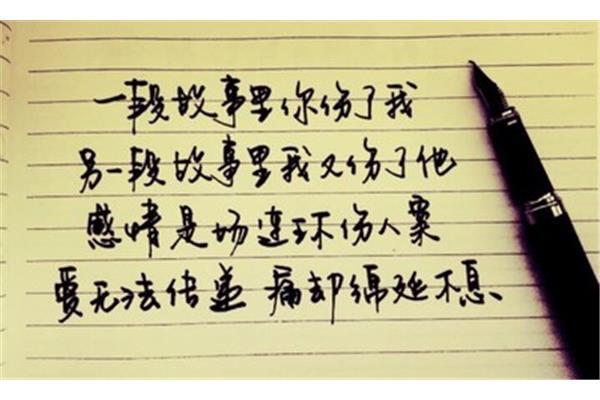 一段故事里你伤了我
另一段故事里我又伤了他
感情是场连环伤人案
爱无法传递 痛却绵延不息、